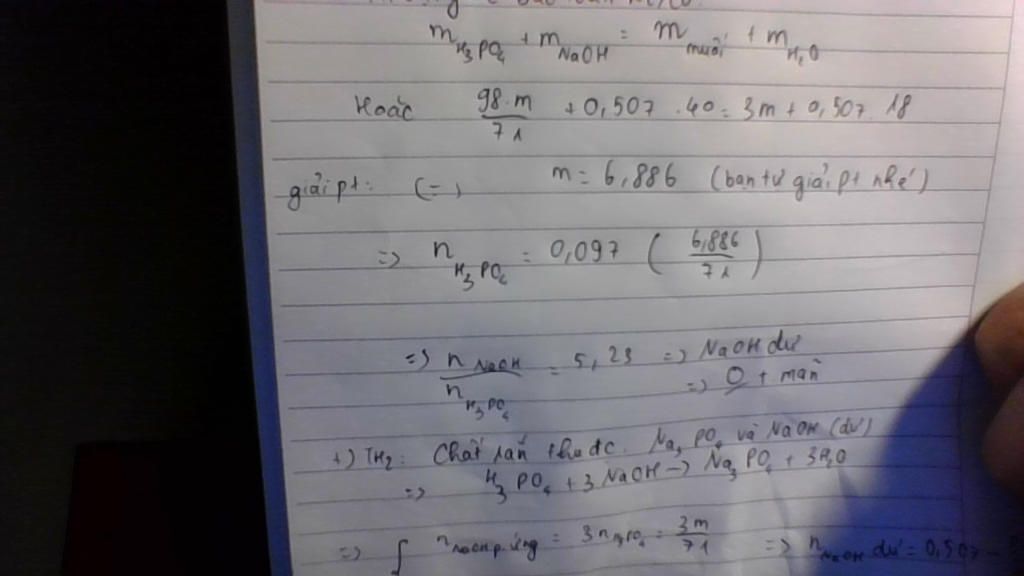 m H₃PO₄ + m NaOH = m muối + m H₂O
Hoặc 98.m/71 + 0,507 .40 = 3m + 0,507. 18
giải pt: (=) m = 6,886 (bạn tự giải pt nhé)
=> n H₃PO₄ = 0,097 (6,886/71)
=> n NaOH / n H₃PO₄ = 5,23 => NaOH dư
=> 0 t mãn
+) TH₂: Chất rắn thu đc: Na₃PO₄ và NaOH (dư)
=> H₃PO₄ + 3 NaOH -> Na₃PO₄ + 3H₂O
=> n NaOH p.ứng = 3 n H₃PO₄ = 3m/71 => n NaOH dư = 0,507 -